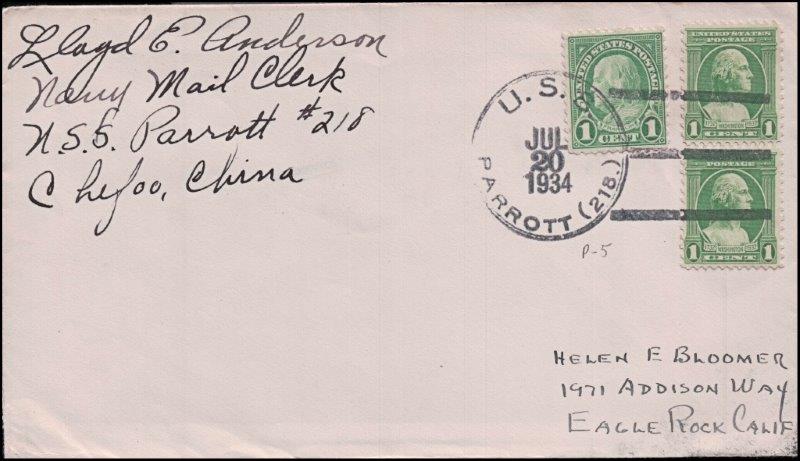 Lloyd E. Anderson
Navy Mail Clerk
U.S.S. Parrott #218
Chefoo, China
UNITED STATES POSTAGE
1 1
CENT
UNITED STATES
POSTAGE
1 WASHINGTON 1
CENT
POSTAGE
1 WASHINGTON 1
CENT
U. S.
JUL
20
1934
PARROTT (218.)
P-5
HELEN E BLOOMER
1971 ADDISON WAY
EAGLE ROCK CALIF